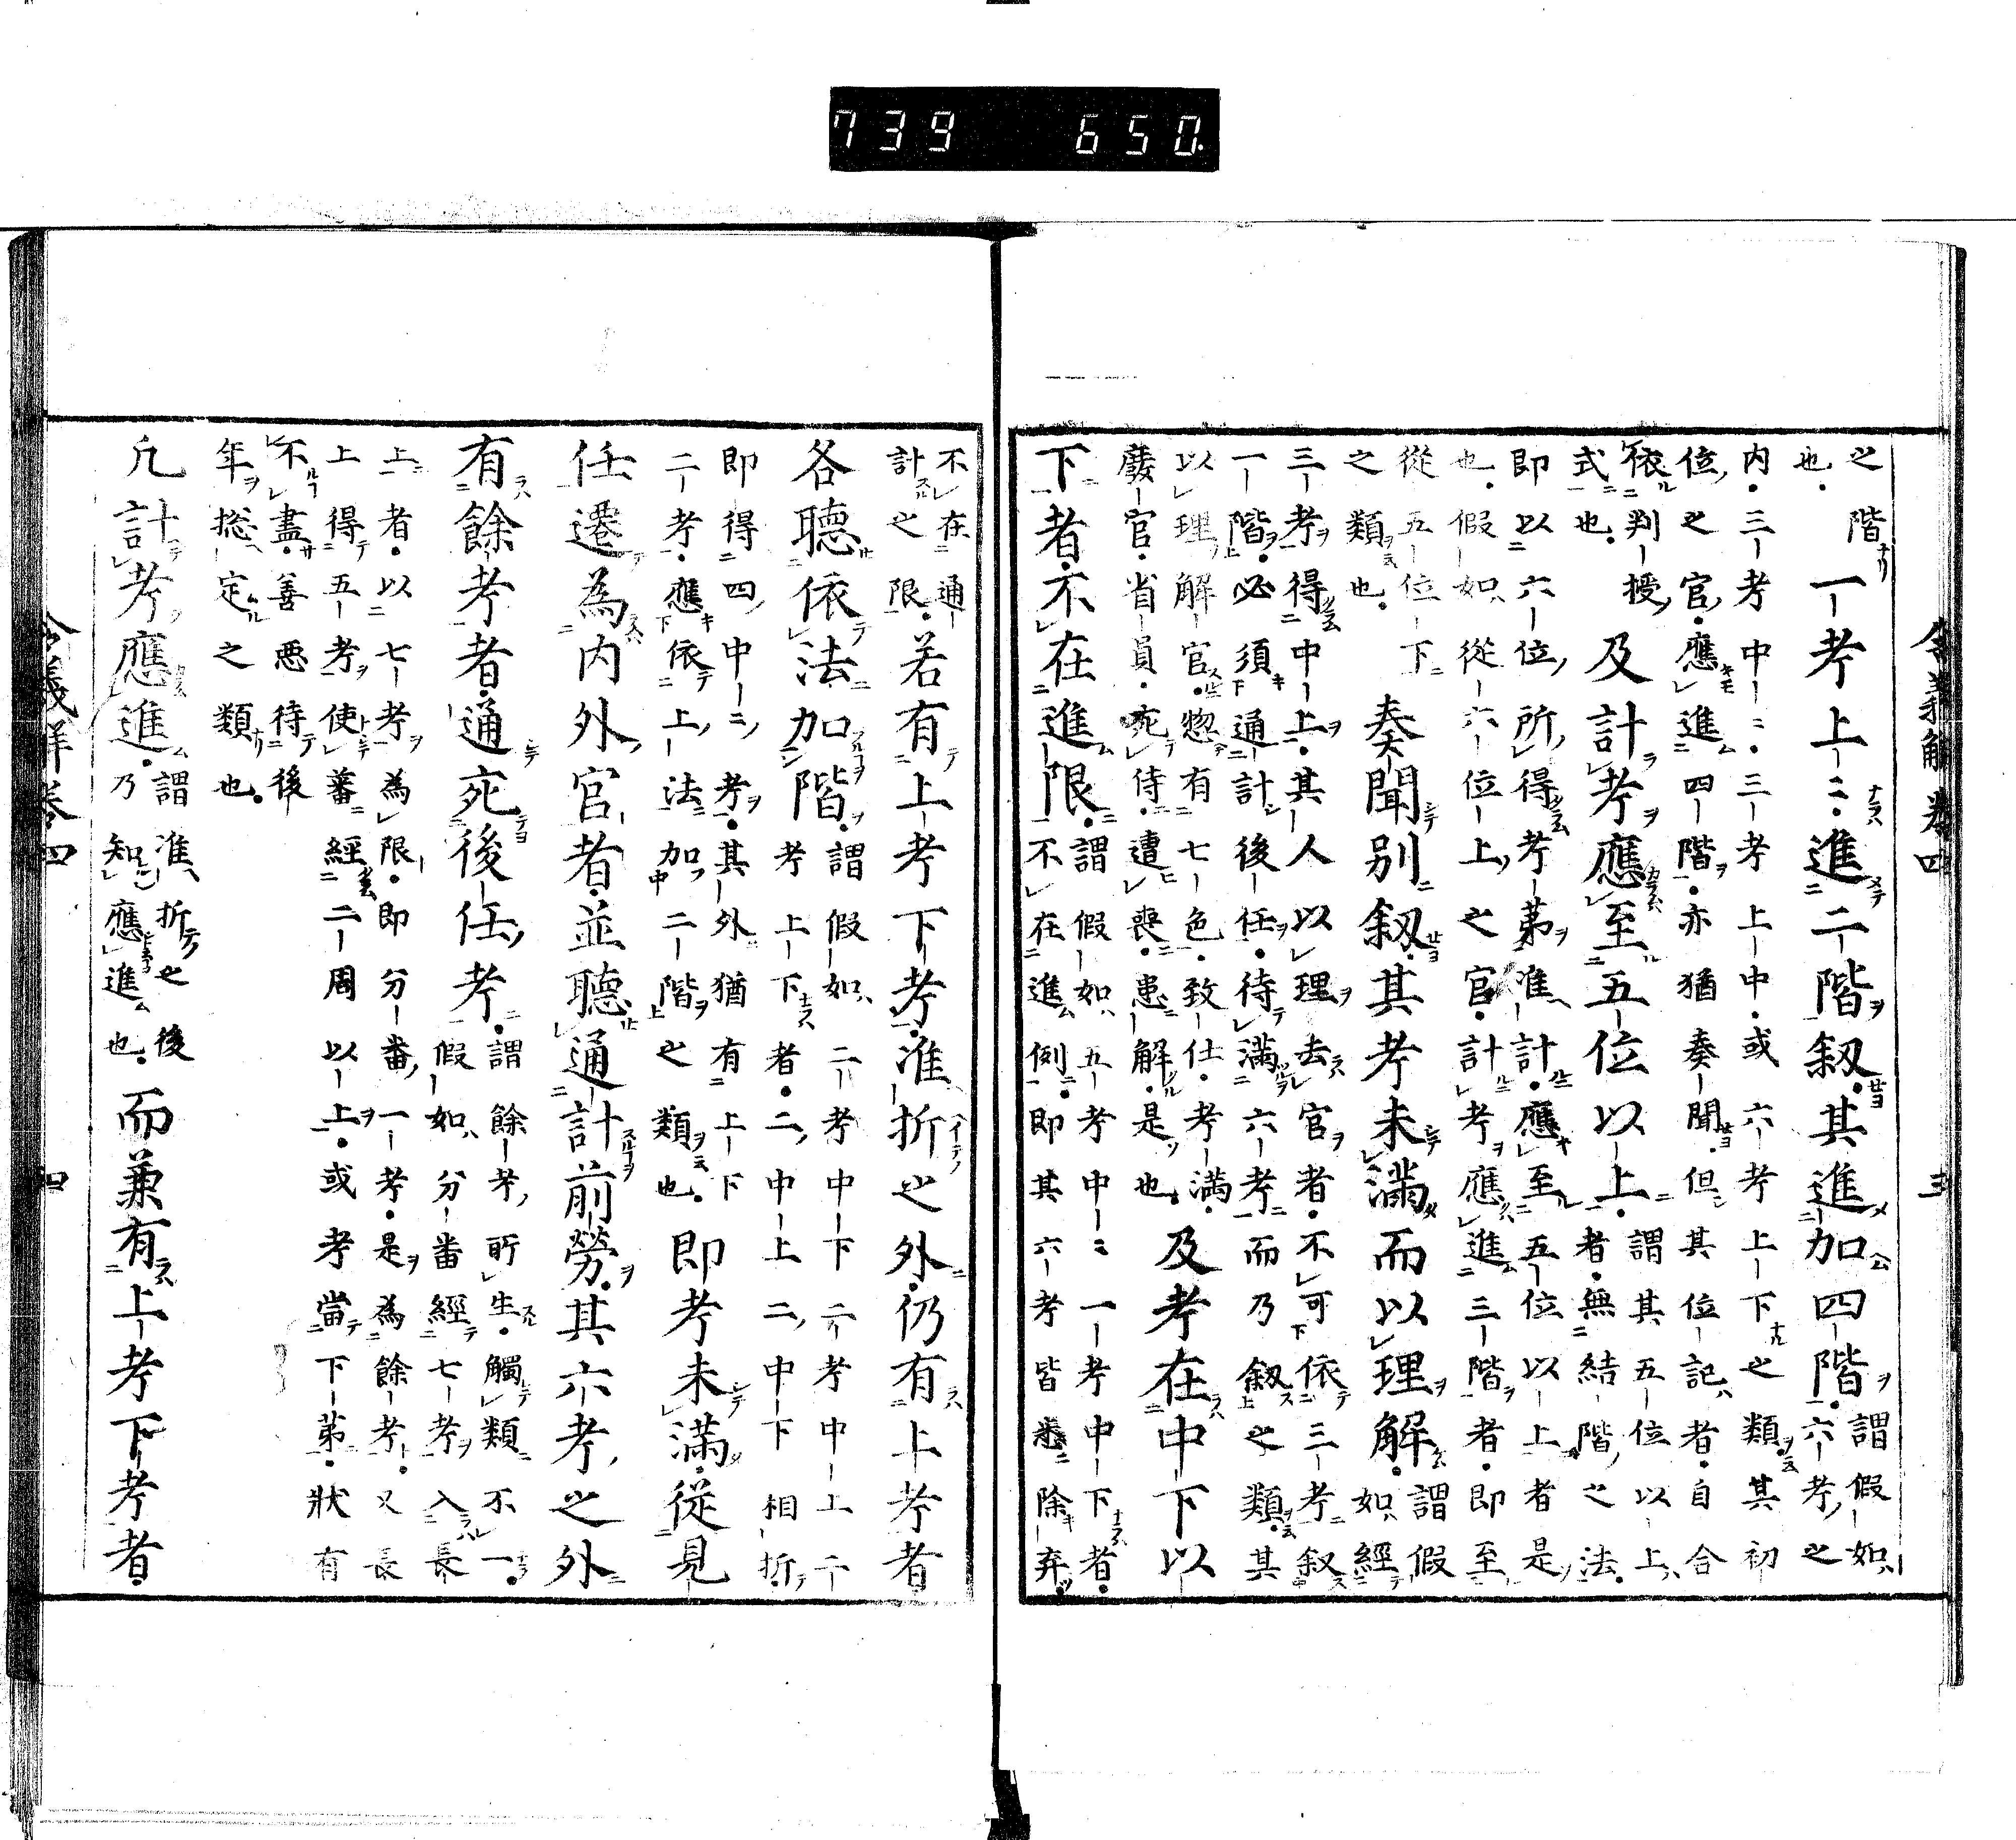 令義解卷四　三
之階
也。
一考上二。進二階叙。其進加四階。
謂假如
六考之
内。三考中二。三考上中。或六考上下之類其初
位之官。應進四階。亦猶奏聞。但其位記者。自合
依判授
式也。
及計考應至五位以上。
謂其五位以上
者。無結階之法。
即以六位所得考第准計。應至五位以上者是
也。假如從六位上之官。計考應進三階者。即至
從五位下
之類也。
奏聞別叙。其考未滿而以理解。
謂假
如經
三考得中上。其人以理去官者。不可依三考叙
一階。必須通計後任。待滿六考而乃叙之類。其
以理解官。惣有七色。致仕。考滿。
廢官。省員。死侍。遭喪。患解。是也。
及考在中下以
下者。不在進限。
謂假如五考中二一考中下者。
不在進例。即其六考皆悉除弃。
不在通
計之限。
若有上考下考。准折之外。仍有上考者
各聽依法加階。
謂假如二考中下二考中上二
考上下者。二中上二中下相折。
即得四中二考。其外猶有上下
二考。應依上法加二階之類也。
即考未滿。從見
任遷為内外官者。並聽通計前勞。其六考之外
有餘考者。通死後任考。
謂餘考所生。觸類不一。
假如分番經七考入長
上者。以七考為限。即分番一考。是為餘考。又長
上得五考使蕃經二周以上。或考當下第。狀有
不盡。善惡待後
年捴定之類也。
凡計考應進。
謂准折之後
乃知應進也。
而兼有上考下考者。
令義解卷四　四
739 650.